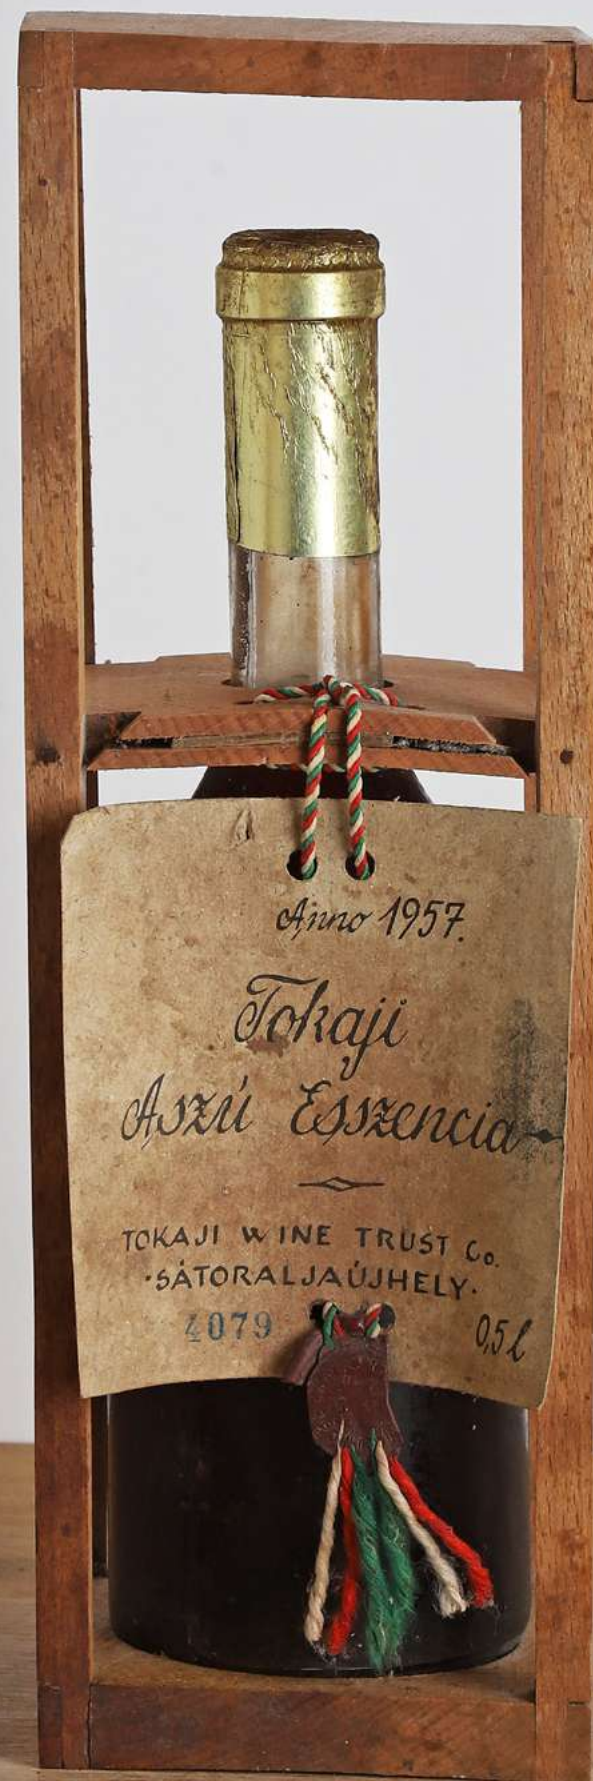 Anno 1957.
Tokaji
Aszú Esszencia
TOKAJI WINE TRUST Co.
·SÁTORALJAÚJHELY·
4079 0,5 l